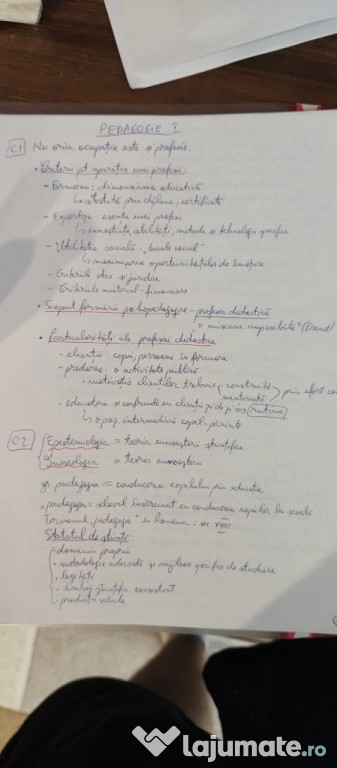 PEDAGOGIE I
C1 Nu orice ocupație este și profesie.
• Criterii pt apariția unei profesii:
- Formarea: dimensiunea educativă
↳ atestată prin diplome, certificate
- Expertiza: esența unei profesii
↳ cunoștințe, abilități, metode și tehnologii specifice
- Utilitatea socială: „binele social"
↳ maximizarea oportunităților de învățare
- Criteriile etice și juridice
- Criteriile material-financiare
• Scopul formării psihopedagogice - profesia didactică
"o misiune imposibilă"
• Particularități ale profesiei didactice
- clienții: copii, persoane în formare
- predarea: o activitate publică
- motivația clienților trebuie construită prin efort
menținută
- educatorii se confruntă cu clienții zi de zi => rutina
↳ o poz. intermediară copil-părinte
C2 Epistemologia = teoria cunoașterii științifice
Gnoseologia = teoria cunoașterii
gr. paidagogia = conducerea copilului prin educație
„paidagogos" = sclavul însărcinat cu conducerea copiilor la școală
Termenul „pedagogie" în România: sec XVIII
Statutul de știință:
• domeniu propriu
• metodologie adecvată și mijloace specifice de studiere
• legități
• limbaj științific consistent
- predicții valide
lajumate.ro